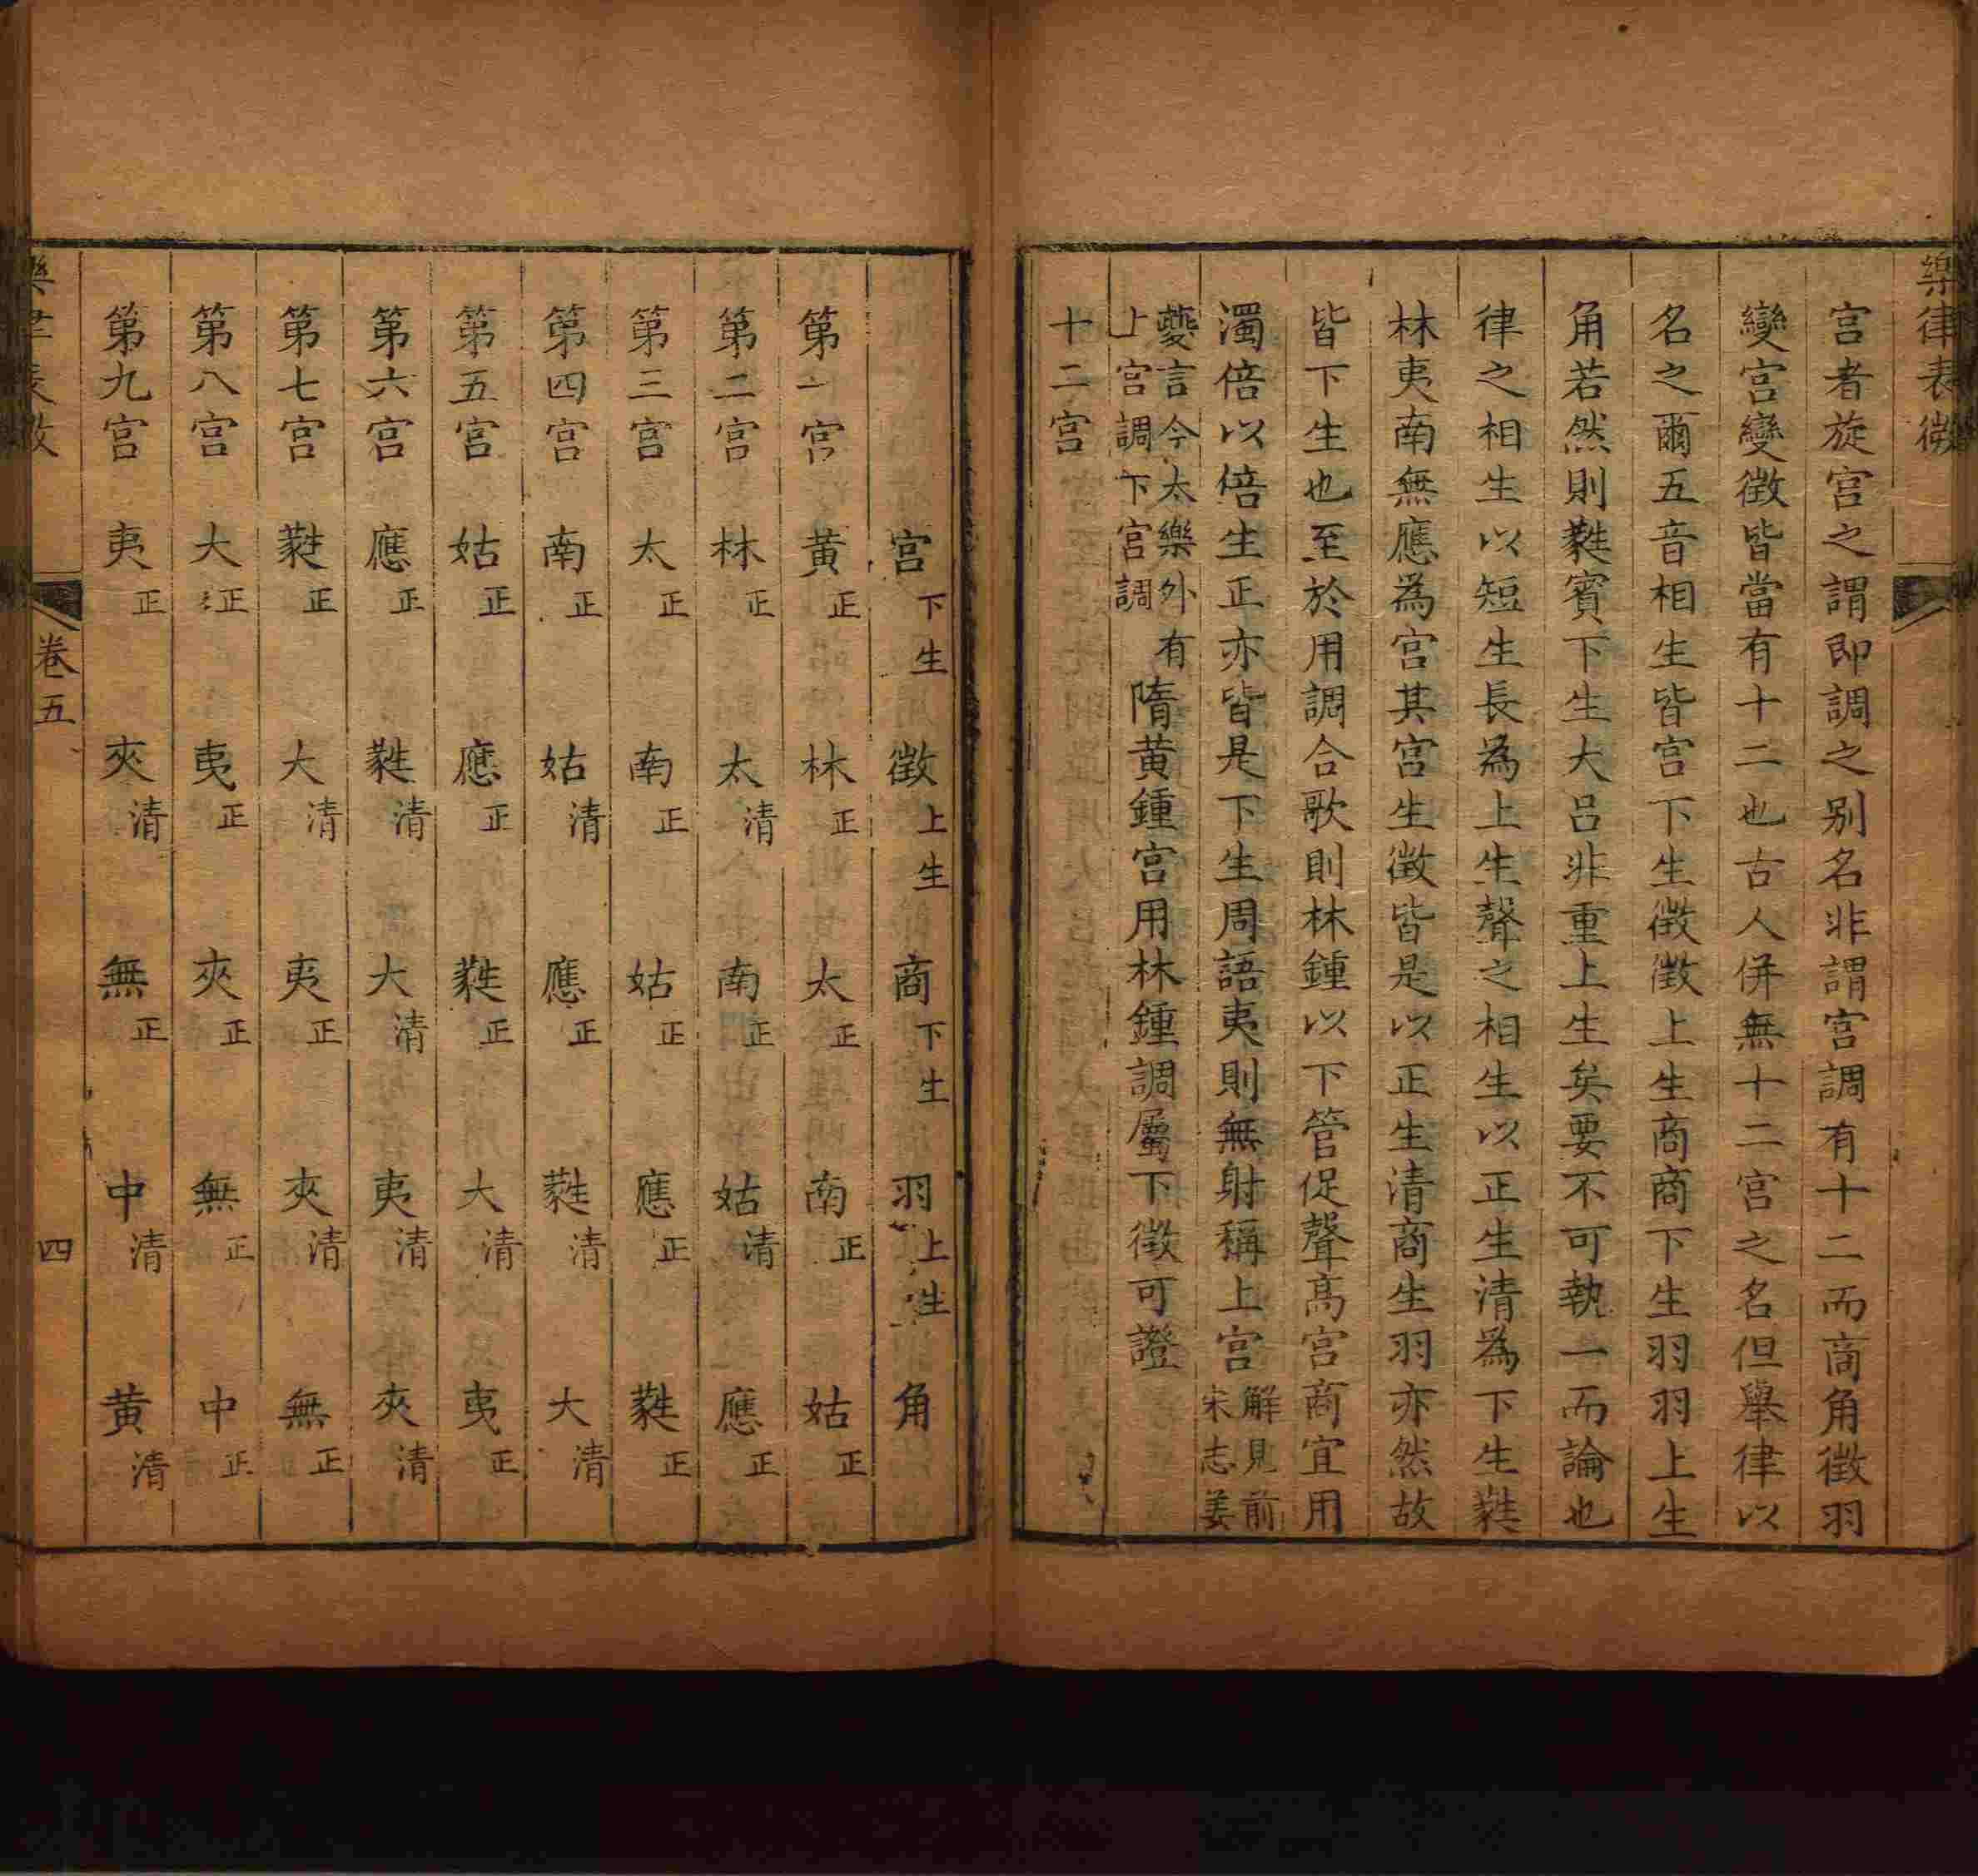 樂律表微
宮者旋宮之謂即調之别名非謂宮調有十二而商角徵羽
變宮變徵皆當有十二也古人併無十二宮之名但舉律以
名之爾五音相生皆宮下生徵徵上生商商下生羽羽上生
角若然則蕤賓下生大呂非重上生矣要不可執一而論也
律之相生以短生長為上生聲之相生以正生清為下生蕤
林夷南無應為宮其宮生徵皆是以正生清商生羽亦然故
皆下生也至於用調合歌則林鍾以下管促聲高宮商宜用
濁倍以倍生正亦皆是下生周語夷則無射稱上宮解見前宋志姜
夔言今太樂外有上宮調下宮調隋黄鍾宮用林鍾調屬下徵可證
十二宮
宮下生 徵上生 商下生 羽上生 角
第一宮 黄正 林正 太正 南正 姑正
第二宮 林正 太清 南正 姑清 應正
第三宮 太正 南正 姑正 應正 蕤正
第四宮 南正 姑清 應正 蕤清 大清
第五宮 姑正 應正 蕤正 大清 夷正
第六宮 應正 蕤清 大清 夷清 夾清
第七宮 蕤正 大清 夷正 夾清 無正
第八宮 大正 夷正 夾正 無正 中正
第九宮 夷正 夾清 無正 中清 黄清
樂律表微 卷五 四